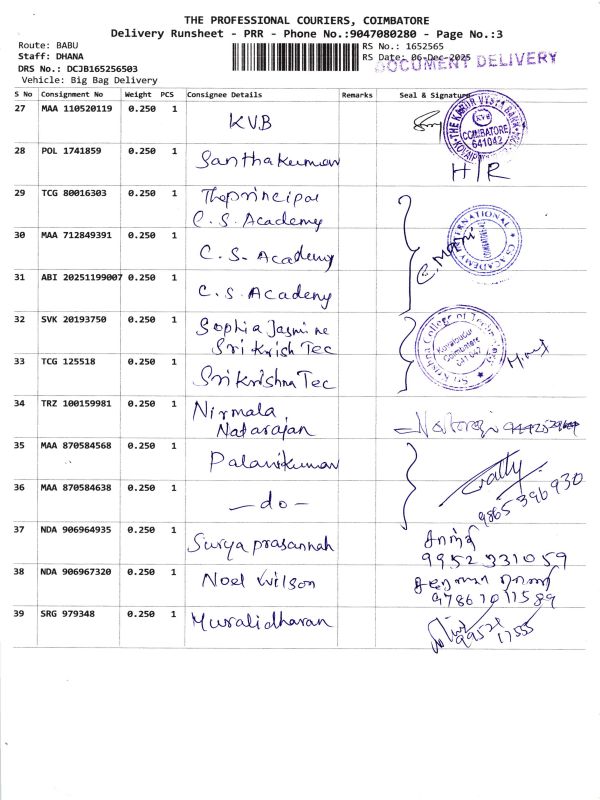 THE PROFESSIONAL COURIERS, COIMBATORE
Delivery Runsheet - PRR - Phone No.:9047080280 - Page No.:3
Route: BABU
Staff: DHANA
DRS No.: DCJB165256503
Vehicle: Big Bag Delivery
RS No.: 1652565
RS Date: 06-Dec-2025
DOCUMENT DELIVERY
S No Consignment No Weight PCS Consignee Details Remarks Seal & Signature
27 MAA 110520119 0.250 1 KVB
THE KARUR VYSYA BANK
KVB
COIMBATORE
641042
28 POL 1741859 0.250 1 Santhakumar
H/R
29 TCG 80016303 0.250 1 The principal
C.S. Academy
30 MAA 712849391 0.250 1 C.S. Academy
C. Mani
31 ABI 20251199007 0.250 1 C.S. Academy
32 SVK 20193750 0.250 1 Sophia Jasmine
Sri Krish Tec
Sri Krishna College of Technology
Kovaipudur
Coimbatore
641 042
33 TCG 125518 0.250 1 Sri Krishna Tec
34 TRZ 100159981 0.250 1 Nirmala
Natarajan
35 MAA 870584568 0.250 1 Palanikumar
9865396930
36 MAA 870584638 0.250 1 - do -
37 NDA 906964935 0.250 1 Surya prasannah
9952331059
38 NDA 906967320 0.250 1 Noel Wilson
9786701589
39 SRG 979348 0.250 1 Muralidharan